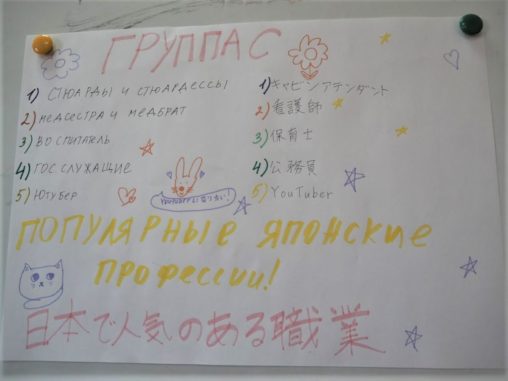 ГРУППА С
1) СТЮАРДЫ И СТЮАРДЕССЫ
2) МЕДСЕСТРА И МЕДБРАТ
3) ВОСПИТАТЕЛЬ
4) ГОС СЛУЖАЩИЕ
5) ЮТУБЕР
1) キャビンアテンダント
2) 看護師
3) 保育士
4) 公務員
5) YouTuber
ПОПУЛЯРНЫЕ ЯПОНСКИЕ
ПРОФЕССИИ!
日本で人気のある職業